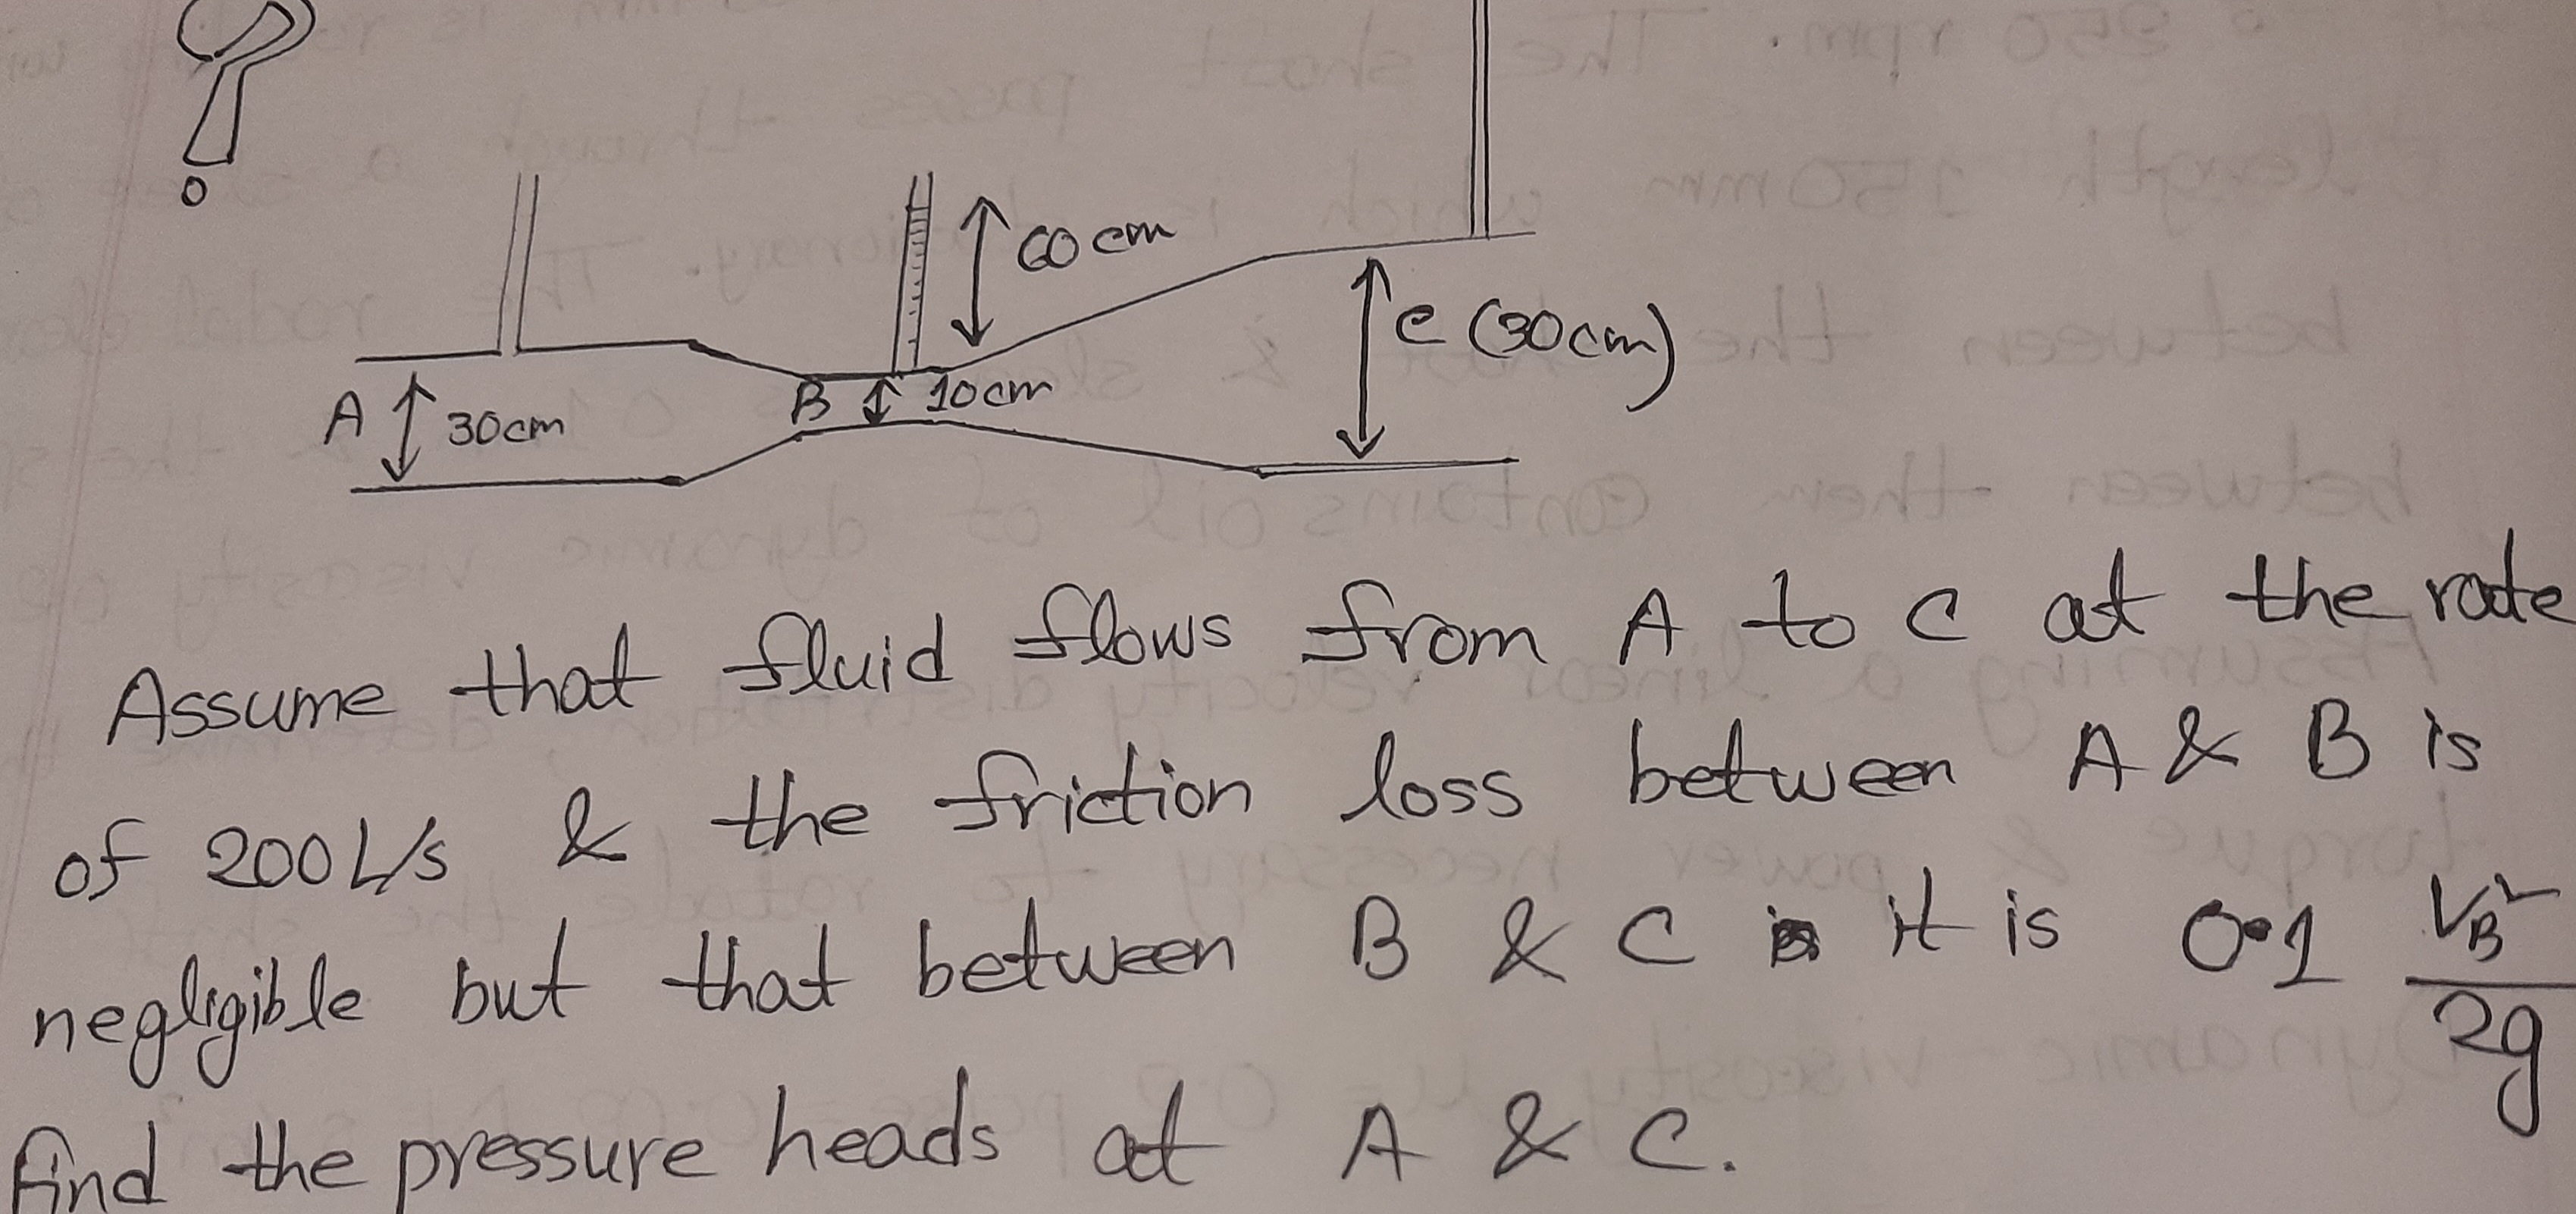 60 cm
C (30cm)
A 30cm
B 10cm
Assume that fluid flows from A to C at the rate
of 200 L/s & the friction loss between A & B is
negligible but that between B & C it is 0.1 V_B²/2g
find the pressure heads at A & C.